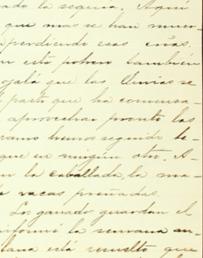 ado la sequía. Aquí
que mas se han muer-
perdiendo esas crias.
n este potrero tambien
ojalá que las lluvias se
parte que ha comenza-
aprovechar pronto las
vamos hemos seguido de-
que en ningun otro. A-
n la caballada, la ma-
s vacas preñadas.
Los ganado guardan el
informé la semana an-
lana está resuelto que